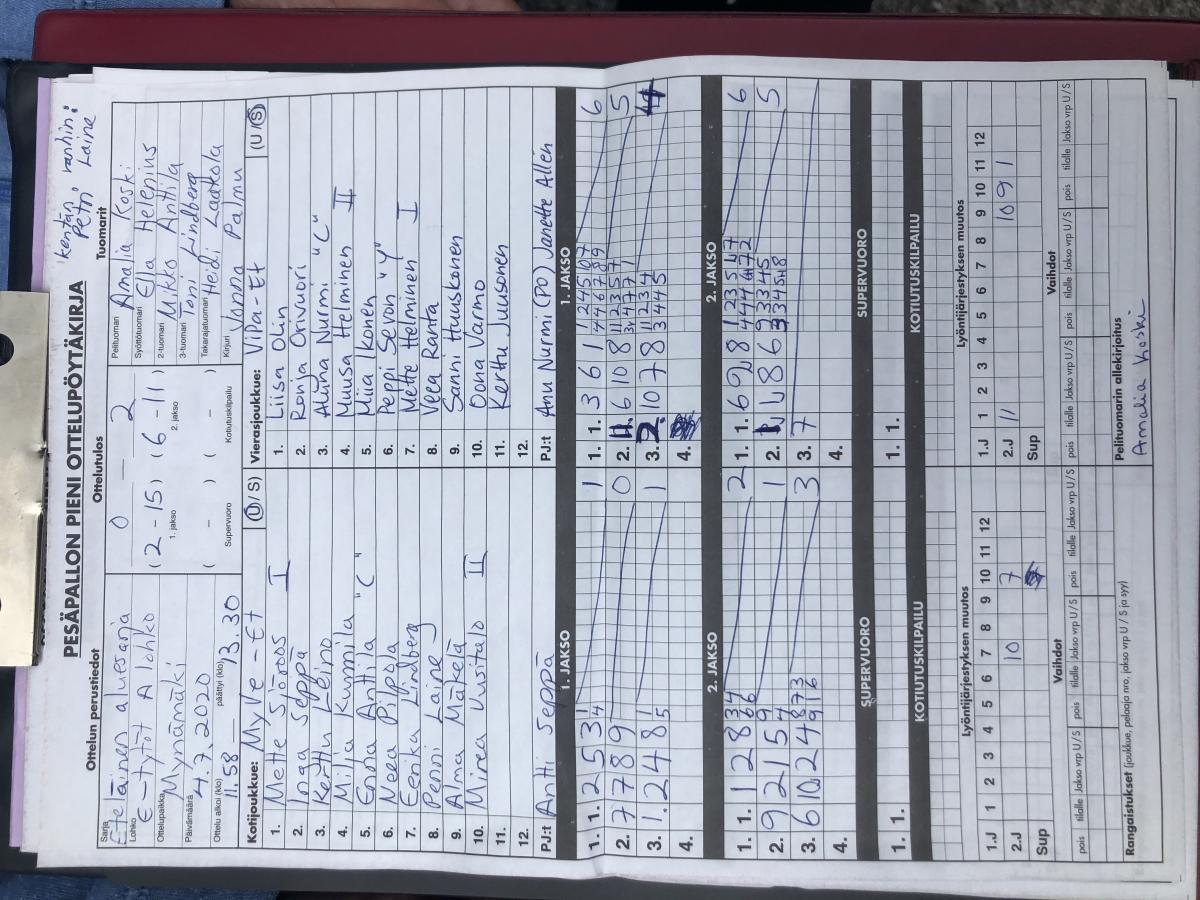 'kentän vanhin:
Petri Laine
PESÄPALLON PIENI OTTELUPÖYTÄKIRJA
Ottelun perustiedot
Sarja
Eteläinen aluesarja
Lohko
E-tytöt A lohko
Ottelupaikka
Mynämäki
Päivämäärä
4.7.2020
Ottelu alkoi (klo) 11.58 päättyi (klo) 13.30
Ottelutulos
0 — 2
(2 - 15) (6 - 11)
1. jakso 2. jakso
( - ) ( - )
Supervuoro Kotiutuskilpailu
Tuomarit
Pelituomari Amalia Koski
Syöttötuomari Ella Helenius
2-tuomari Mikko Anttila
3-tuomari Toni Lindberg
Takarajatuomari Heidi Laakola
Kirjuri Vanna Palmu
Kotijoukkue: MyVe - Et (U / S)
1. Mette Sjöroos I
2. Inga Seppä
3. Kerttu Leino
4. Milla Kummila
5. Enna Anttila "C"
6. Neea Pilpola
7. Eerika Lindberg
8. Penni Laine
9. Alma Mäkelä
10. Mirea Uusitalo II
11.
12.
PJ:t Antti Seppä
Vierasjoukkue: ViPa - Et (U / S)
1. Liisa Olin
2. Ronja Orivuori
3. Aliina Nurmi "C"
4. Muusa Helminen II
5. Miia Ikonen
6. Peppi Sevon "Y"
7. Mette Helminen I
8. Veea Ranta
9. Sanni Huuskonen
10. Oona Varmo
11. Kerttu Juusonen
12.
PJ:t Anu Nurmi (PO) Janette Allen
1. JAKSO
1. 1. 2 5 3 1 4 1
2. 7 7 8 9 0
3. 1. 2 4 8 5 1
4.
2. JAKSO
1. 1. 1 2 8 2
2. 9 2 1 5 1
3. 6 10 2 4 3
4.
SUPERVUORO
1. 1.
KOTIUTUSKILPAILU
1. JAKSO
1. 1. 3 6 1 6
2. 11. 6 10 8 5
3. 2. 10 7 8 4
4.
2. JAKSO
1. 1. 6 9 2 8 6
2. 8 6 5
3. 7
4.
SUPERVUORO
1. 1.
KOTIUTUSKILPAILU
Lyöntijärjestyksen muutos
1.J 1 2 3 4 5 6 7 8 9 10 11 12
2.J 10 7
Sup
Vaihdot
pois tilalle Jakso vrp U / S pois tilalle Jakso vrp U / S pois tilalle Jakso vrp U / S
Lyöntijärjestyksen muutos
1.J 1 2 3 4 5 6 7 8 9 10 11 12
2.J 11 10 9 1
Sup
Vaihdot
pois tilalle Jakso vrp U / S pois tilalle Jakso vrp U / S pois tilalle Jakso vrp U / S
Rangaistukset (joukkue, pelaaja nro, jakso vrp U / S ja syy)
Pelituomarin allekirjoitus
Amalia Koski